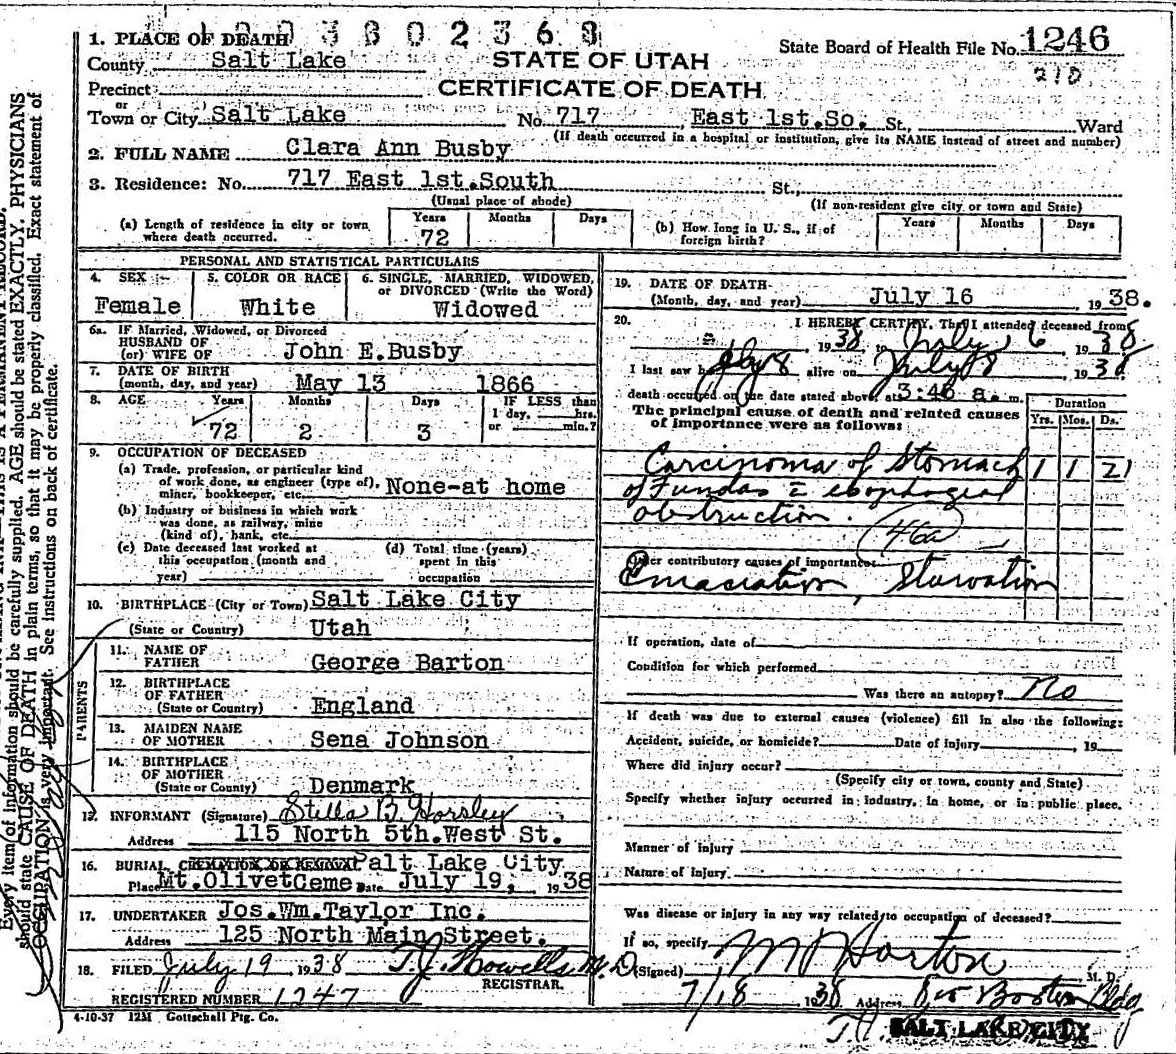 1. PLACE OF DEATH
State Board of Health File No. 1246
County Salt Lake
STATE OF UTAH
210
Precinct
CERTIFICATE OF DEATH
or
Town or City Salt Lake No. 717 East 1st.So. St., Ward
(If death occurred in a hospital or institution, give its NAME instead of street and number)
2. FULL NAME Clara Ann Busby
3. Residence: No. 717 East 1st.South St.,
(Usual place of abode)
(If non-resident give city or town and State)
(a) Length of residence in city or town where death occurred.
Years Months Days
72
(b) How long in U. S., if of foreign birth?
Years Months Days
PERSONAL AND STATISTICAL PARTICULARS
4. SEX
Female
5. COLOR OR RACE
White
6. SINGLE, MARRIED, WIDOWED, or DIVORCED (Write the Word)
Widowed
6a. IF Married, Widowed, or Divorced
HUSBAND OF
(or) WIFE OF John E.Busby
7. DATE OF BIRTH
(month, day, and year) May 13 1866
8. AGE Years Months Days
IF LESS than
1 day, hrs.
or min.?
72 2 3
9. OCCUPATION OF DECEASED
(a) Trade, profession, or particular kind
of work done, as engineer (type of),
miner, bookkeeper, etc. None-at home
(b) Industry or business in which work
was done, as railway, mine
(kind of), bank, etc.
(c) Date deceased last worked at
this occupation (month and
year)
(d) Total time (years)
spent in this
occupation
10. BIRTHPLACE (City or Town) Salt Lake City
(State or Country) Utah
PARENTS
11. NAME OF
FATHER George Barton
12. BIRTHPLACE
OF FATHER
(State or Country) England
13. MAIDEN NAME
OF MOTHER Sena Johnson
14. BIRTHPLACE
OF MOTHER
(State or County) Denmark
15. INFORMANT (Signature) Stella B. Horsley
Address 115 North 5th.West St.
16. BURIAL, CREMATION OR REMOVAL Salt Lake City
Place Mt.Olivet Ceme Date July 19, 1938
17. UNDERTAKER Jos.Wm.Taylor Inc.
Address 125 North Main Street.
18. FILED July 19 1938 T.J. Howells M.D.
REGISTRAR.
REGISTERED NUMBER 1247
4-10-37 12M Gottschall Ptg. Co.
19. DATE OF DEATH
(Month, day, and year) July 16 1938.
20. I HEREBY CERTIFY, That I attended deceased from
1938 to July 16 1938
I last saw h alive on July 8 1938
death occurred on the date stated above, at 3:46 a. m.
The principal cause of death and related causes
of importance were as follows:
Duration
Yrs. Mos. Ds.
Carcinoma of Stomach 1 1 21
of Fundas c̄ esophageal
obstruction.
46a
Other contributory causes of importance:
Emaciation, Starvation
If operation, date of
Condition for which performed
Was there an autopsy? No
If death was due to external causes (violence) fill in also the following:
Accident, suicide, or homicide? Date of injury , 19
Where did injury occur?
(Specify city or town, county and State)
Specify whether injury occurred in industry, in home, or in public place.
Manner of injury
Nature of injury
Was disease or injury in any way related to occupation of deceased?
If so, specify
(Signed) Horton M. D.
7/18 1938 Address Boston Bldg
SALT LAKE CITY
Every item of information should be carefully supplied. AGE should be stated EXACTLY. PHYSICIANS
should state CAUSE OF DEATH in plain terms, so that it may be properly classified. Exact statement of
OCCUPATION is very important. See instructions on back of certificate.